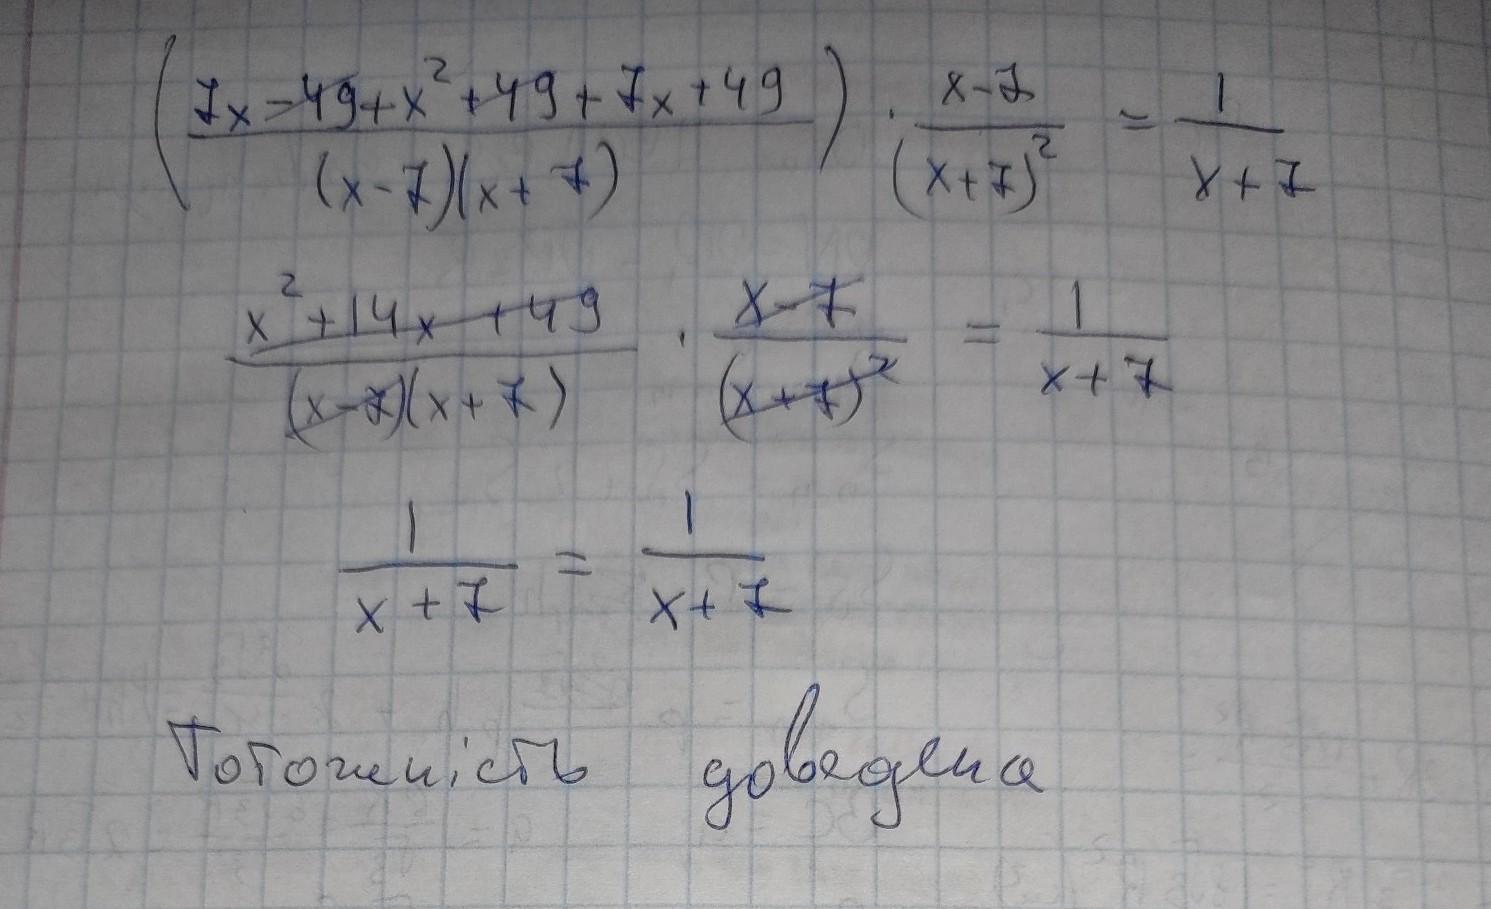 (7x-49+x²+49+7x+49)/((x-7)(x+7)) · (x-7)/(x+7)² = 1/(x+7)
(x²+14x+49)/((x-7)(x+7)) · (x-7)/(x+7)² = 1/(x+7)
1/(x+7) = 1/(x+7)
Тотожність доведена